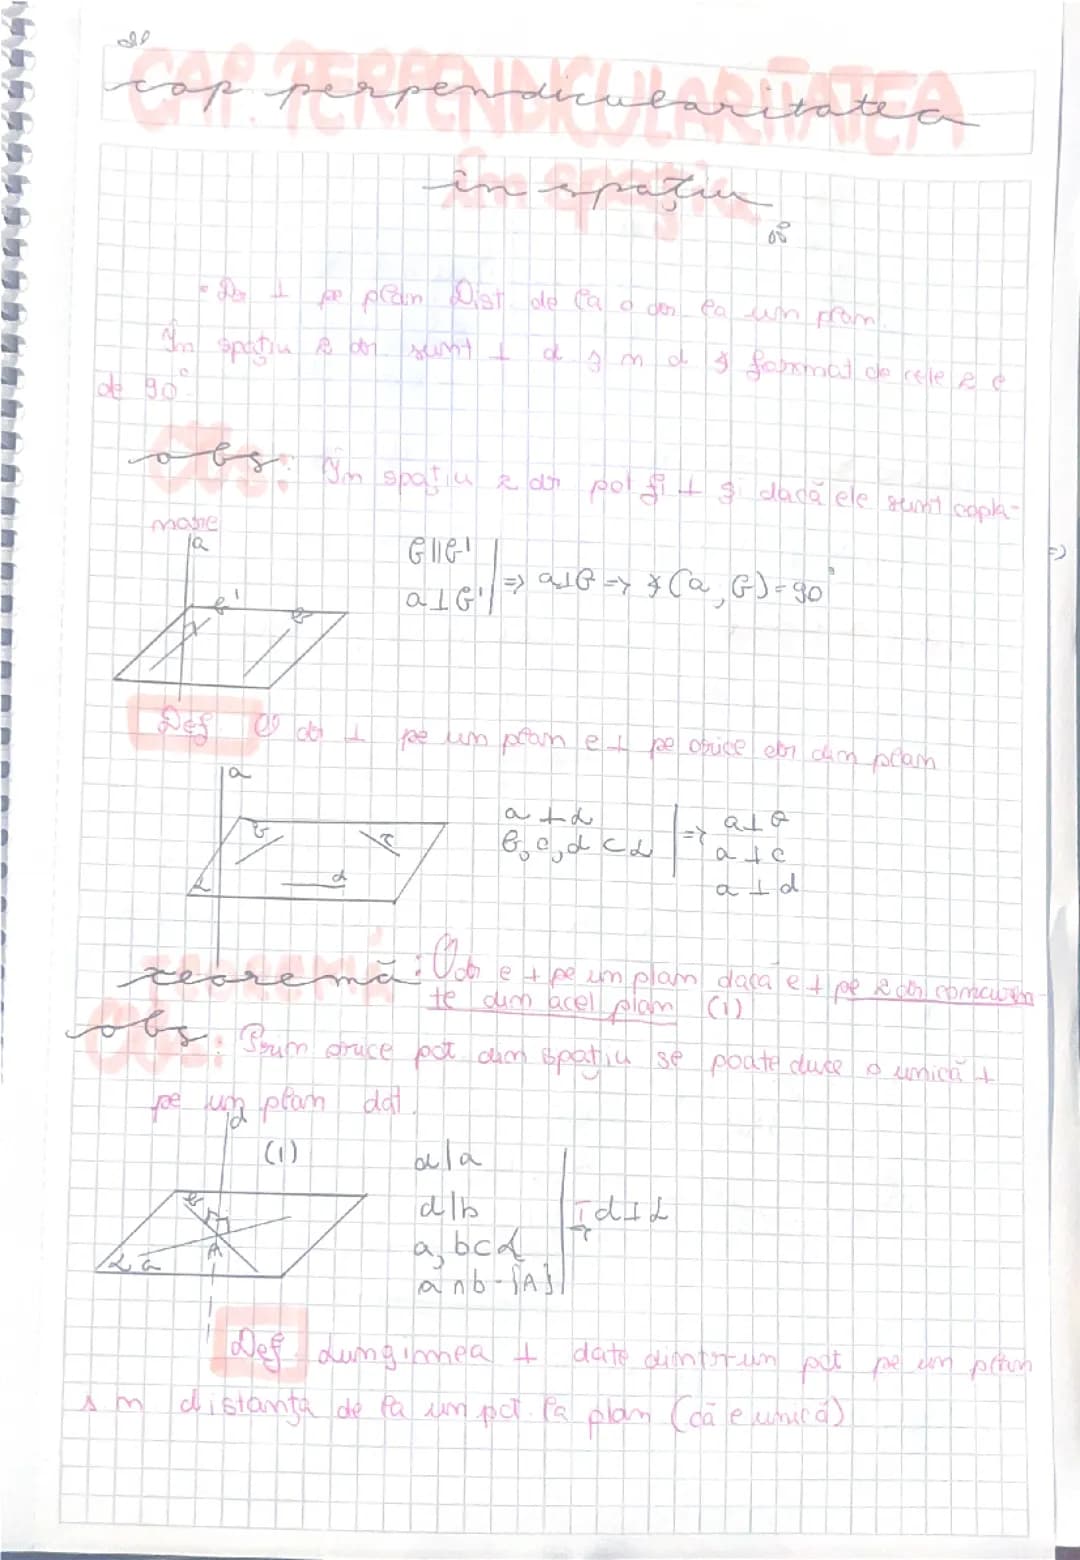 CAP. PERPENDICULARITATEA
cap perpendicularitatea
în spațiu
• Dr ⊥ pe plan Dist de la o dr la un plan.
În spațiu 2 dr sunt ⊥ d ∢ m d ∢ format de cele 2 e
de 90°.
obs: În spațiu 2 dr pot fi ⊥ și dacă ele sunt copla-
nare
a
b' b
b||b'
a⊥b' | => a⊥b => ∢(a, b)=90°
Def. O dr ⊥ pe un plan e ⊥ pe orice dr din plan
a
b c
α d
a ⊥ α
b, c, d ⊂ α | => a⊥b
a ⊥ c
a ⊥ d
teoremă: O dr e ⊥ pe un plan dacă e ⊥ pe 2 dr concuren
te din acel plan (1)
obs: Prin orice pct din spațiu se poate duce o unică ⊥
pe un plan dat.
d
(1)
b
A
α a
d⊥a
d⊥b
a, b⊂α
a ∩ b = {A} | T=> d⊥α
Def. Lungimea ⊥ date dintr-un pct pe un plan
s m distanță de la un pct la plan (că e unică)